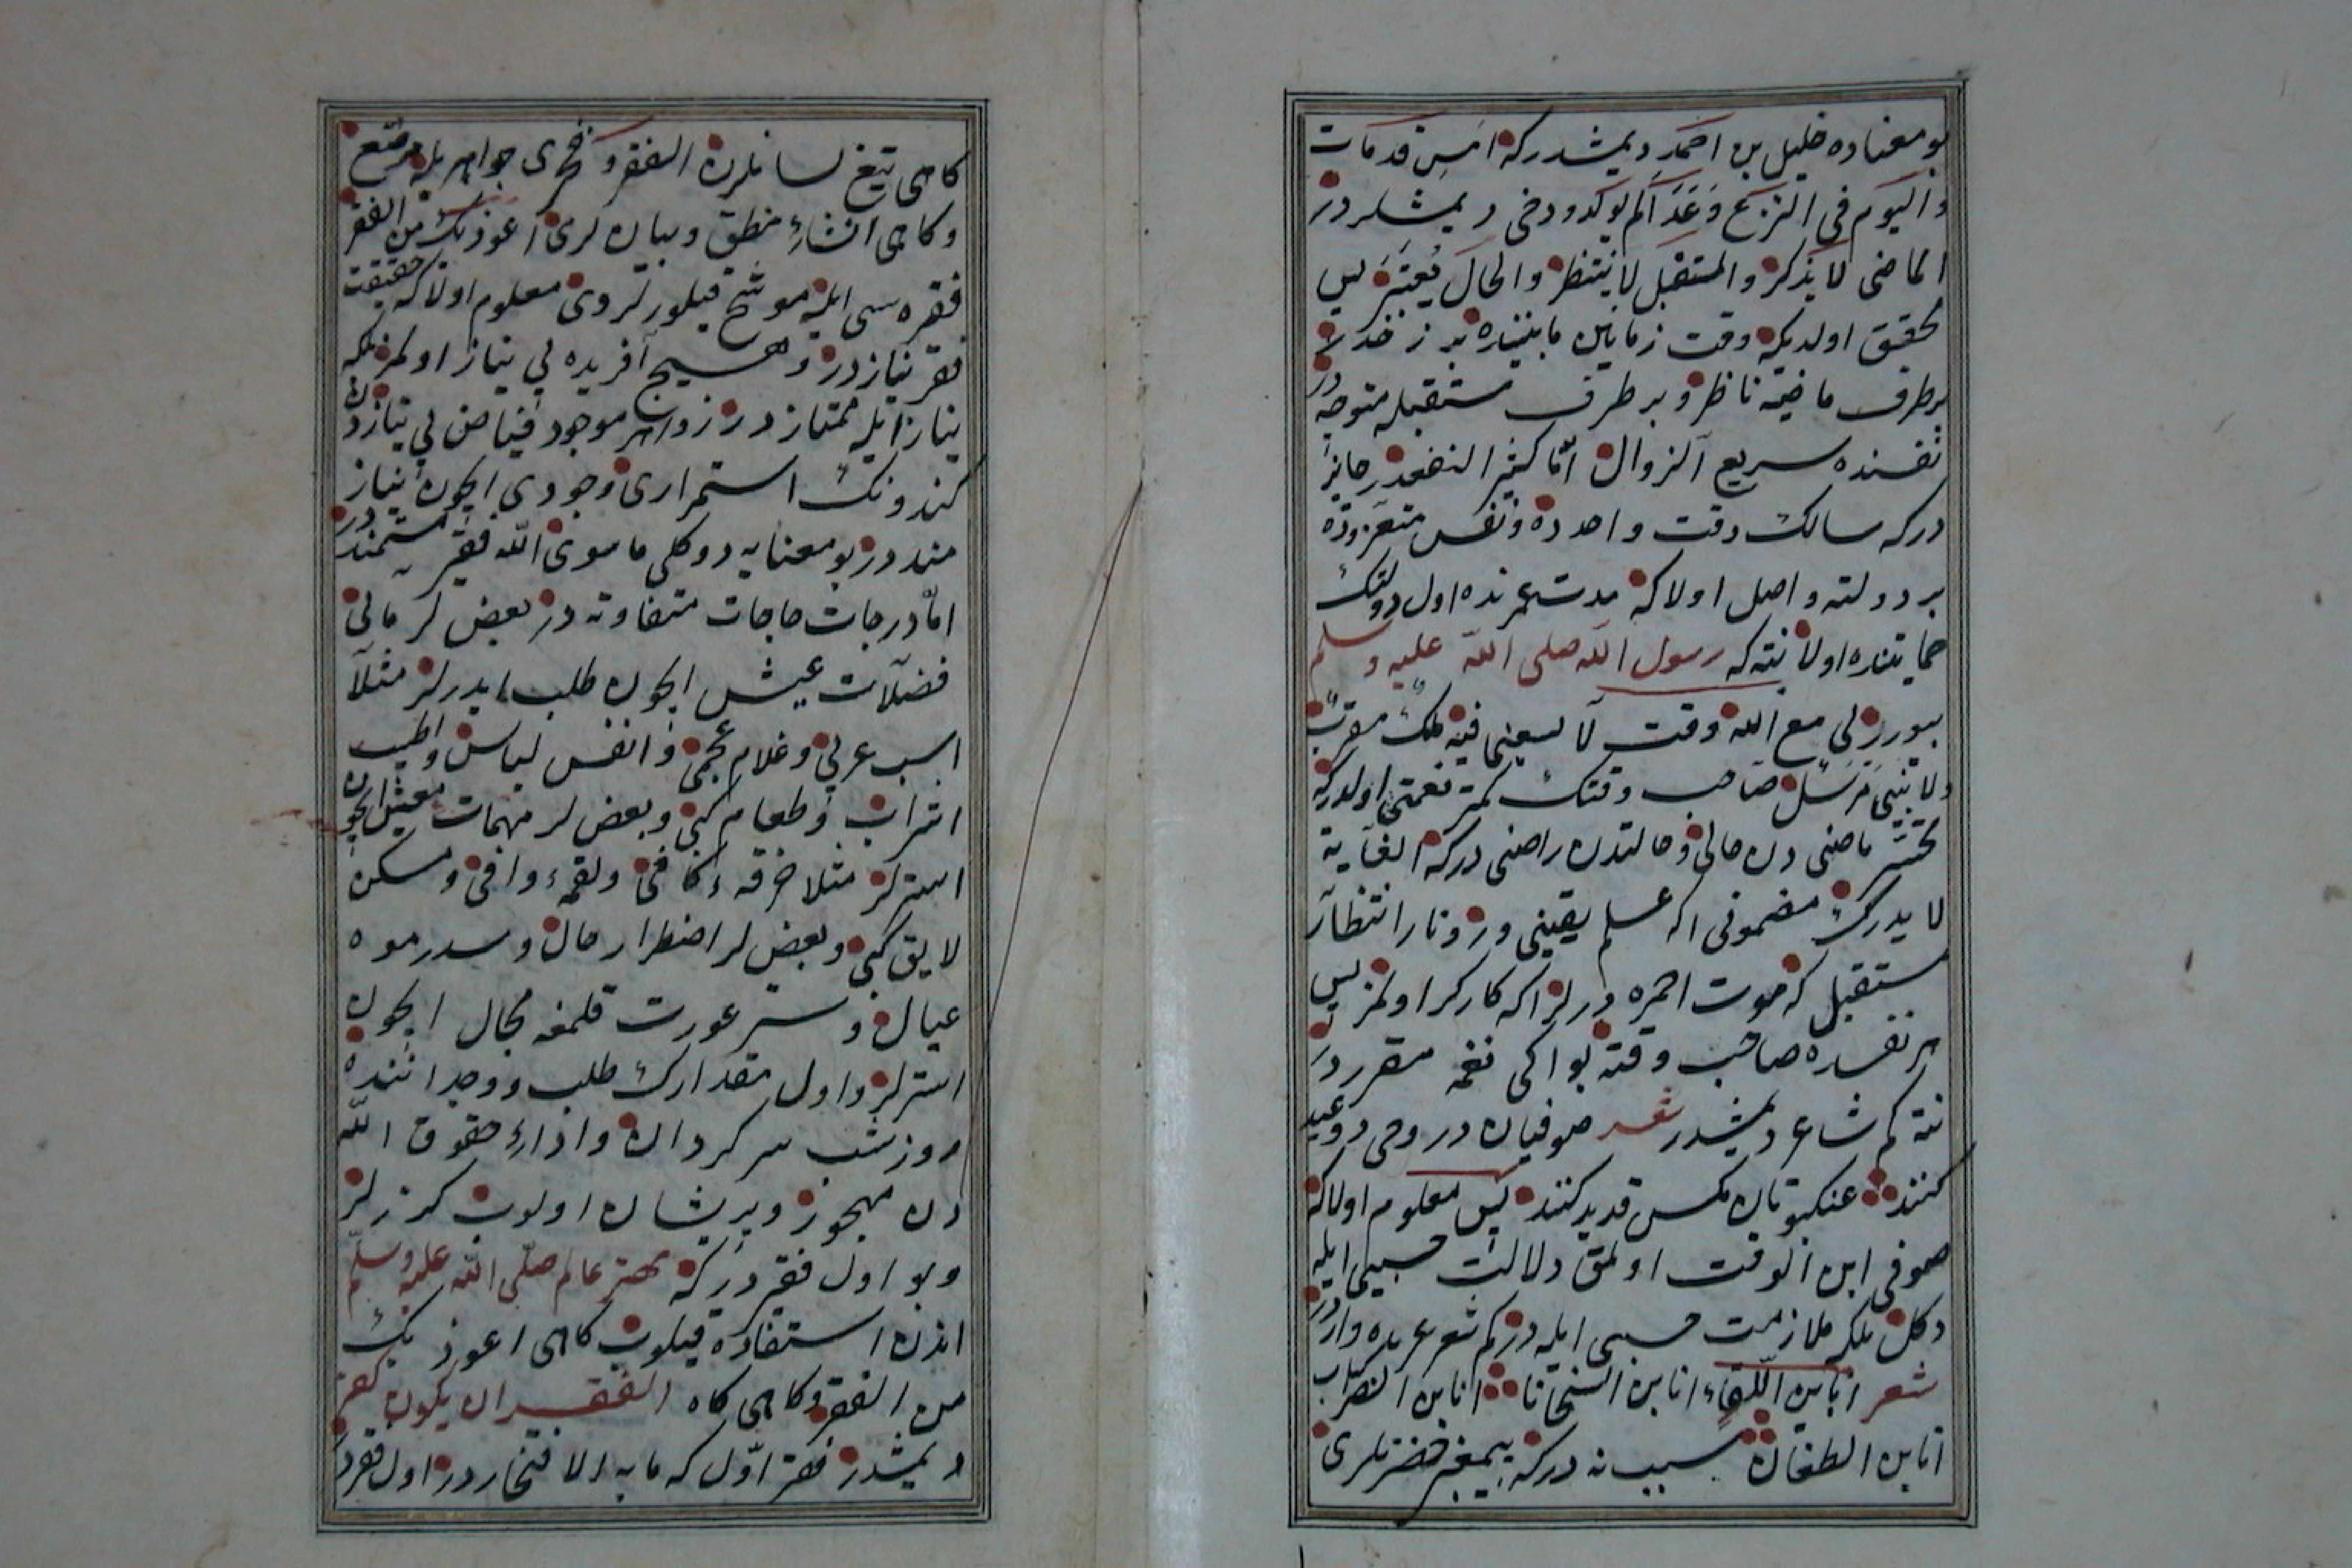 بو معناده خلیل بن احمد دیمشدر که امس قدمات
والیوم فی النزع وغدا لم یولد ودخی دیمشلردر
الماضی لا یذکر والمستقبل لا ینتظر والحال یعتبر پس
محقق اولدیکه وقت زمانین مابیننده بر زخدر
بر طرف ماضیه ناظر وبر طرف مستقبله متوجه در
نفسنده سریع الزوال اما کثیر النفعدر جایز
درکه سالک وقت واحدده ونفس متعززده
بر دولته واصل اولا که مدت عمرنده اول دولتک
حمایتنده اولا نته که رسول الله صلی الله علیه وسلم
بیورر لی مع الله وقت لا یسعنی فیه ملک مقرب
ولا نبی مرسل صاحب وقتک کمتر نعمتی اولدرکه
تحسر ماضی دن خالی وحالتدن راضی درکه الغایة
لا یدرک مضمونی اکه علم یقینی ورر ونار انتظار
مستقبل که موت احمره درلر اکه کارکر اولمز پس
هر نفسده صاحب وقته بو ایکی نغمه مقرردر
نته کم شاعر دیمشدر شعر صوفیان در دمی دو عید
کنند عنکبوتان مکس قدید کنند پس معلوم اولا که
صوفی ابن الوقت اولمق دلالت حسبی ایله
دکل بلکه ملازمت حسبی ایله در کم شعر عربده واردر
شعر انا بن اللقاء انا بن السخا انا بن الضراب
انا بن الطعان سبب نه درکه پیغمبر حضرتلری
کاهی تیغ لسانلرن الفقر فخری جواهریله مرصع
وکاهی انشاء منطق وبیان لری اعوذ بک من الفقر
فقره سی ایله موشح قیلورلردی معلوم اولا که حقیقت
فقر نیازدر وهیچ آفریده بی نیاز اولمز بلکه
نیاز ایله ممتازدر زواهر موجود فیاض بی نیازدن
کندونک استمراری وجودی ایچون نیاز
منددر بو معنایه دوکلی ماسوی الله فقیر مستمنددر
اما درجات حاجات متفاوته در بعض لر مالی
فضلات عیش ایچون طلب ایدرلر مثلا
اسب عربی وغلام عجمی وانفس لباس واطیب
شراب وطعام کبی وبعض لر مهمات معیش ایچون
استرلر مثلا خرقهء کافی ولقمهء وافی ومسکن
لایق کبی وبعض لر اضطرار حال وسدرموه
عیال وستر عورت قلمغه مجال ایچون
استرلر واول مقدارک طلب ووجداننده
روز شب سرکردان واداء حقوق الله
دن مهجور وپریشان اولوب کزرلر
وبو اول فقردرکه مهتر عالم صلی الله علیه وسلم
اندن استفاده قیلوب کاهی اعوذ بک
من الفقر وکاهی کاد الفقر ان یکون کفرا
دیمشدر فقر اول که مابه الافتخاردر اول فقردر